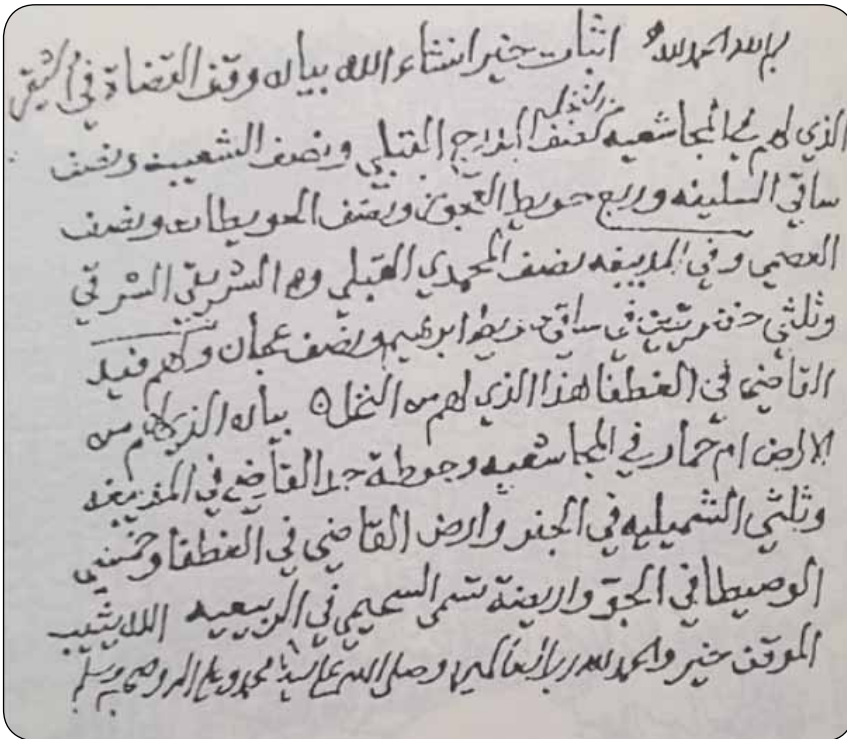 بسم الله الحمد لله اثبات خير انشاء الله بيان وقف القضاة في الشقيق
الذي لهم في المجاشعيه من النخل كنصف ابدراج القبلي ونصف الشعيبيه ونصف
ساقي السليفه وربع حويط العجوز ونصف الحويطات ونصف
العصمي وفي المديبغه نصف المحمدي القبلي وهو الشريقي الشرقي
وثلثي في ساقي حويط ابراهيم ونصف عجلان ولهم فيد
القاضي في الغطفا هذا الذي لهم من النخل بيان الذي لهم من
الارض ام حمار في المجاشعيه وحوطة جد القاضي في المديبغه
وثلثي الشميليه في الجفر وارض القاضي في الغطفا وخمسي
الوصيطا في الجو واريضة تسمى السحيمي في الربيعيه الله يثيب
الموقف خير والحمد لله رب العالمين وصلى الله على سيدنا محمد وعلى اله وصحبه وسلم